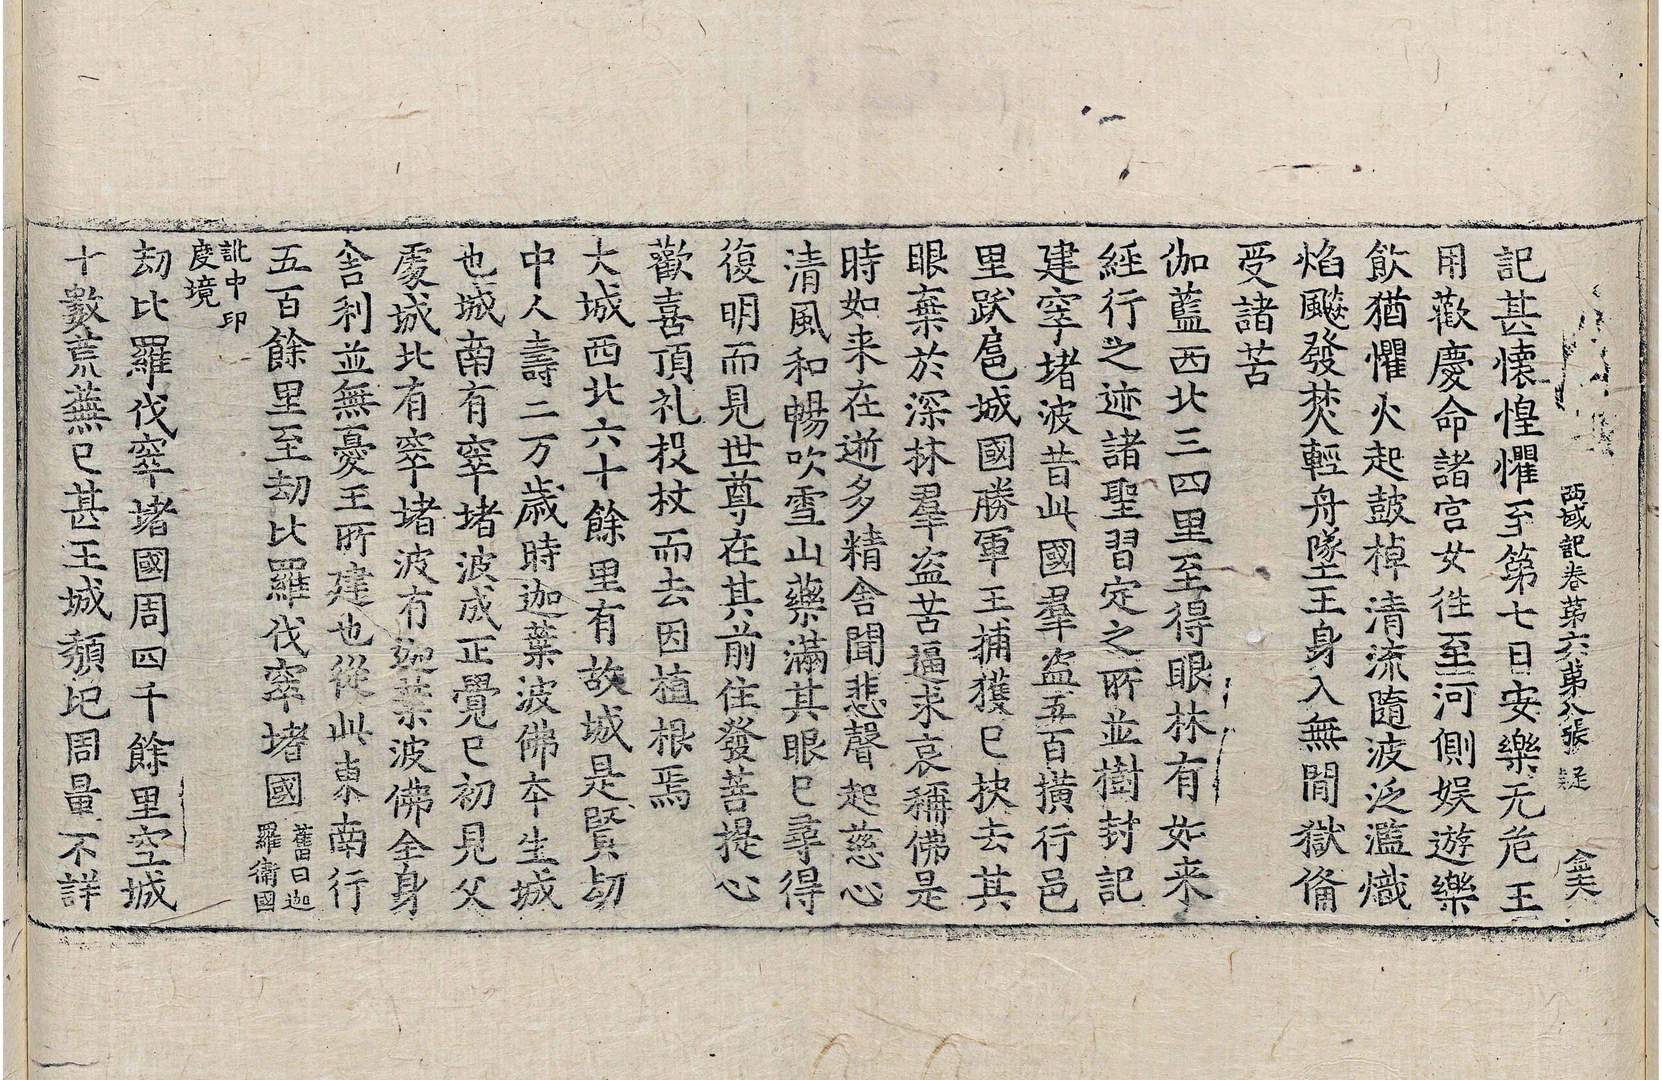 西域記卷第六 第八張 疑 金夫
記甚懷惶懼至第七日安樂无危王
用歡慶命諸宮女往至河側娛遊樂
飲猶懼火起鼓棹清流隨波泛濫熾
焰飈發焚輕舟墜王身入無閒獄俻
受諸苦
伽藍西北三四里至得眼林有如来
經行之迹諸聖習定之所並樹封記
建窣堵波昔此國羣盜五百橫行邑
里跋扈城國勝軍王捕獲已抉去其
眼棄於深林羣盜苦逼求哀稱佛是
時如来在逝多精舍聞悲聲起慈心
清風和暢吹雪山藥滿其眼已尋得
復明而見世尊在其前住發菩提心
歡喜頂礼投杖而去因植根焉
大城西北六十餘里有故城是賢劫
中人壽二万歲時迦葉波佛本生城
也城南有窣堵波成正覺已初見父
處城北有窣堵波有迦葉波佛全身
舍利並無憂王所建也從此東南行
五百餘里至劫比羅伐窣堵國舊曰迦
羅衛國
訛中印
度境
劫比羅伐窣堵國周四千餘里空城
十數荒蕪已甚王城頹圮周量不詳